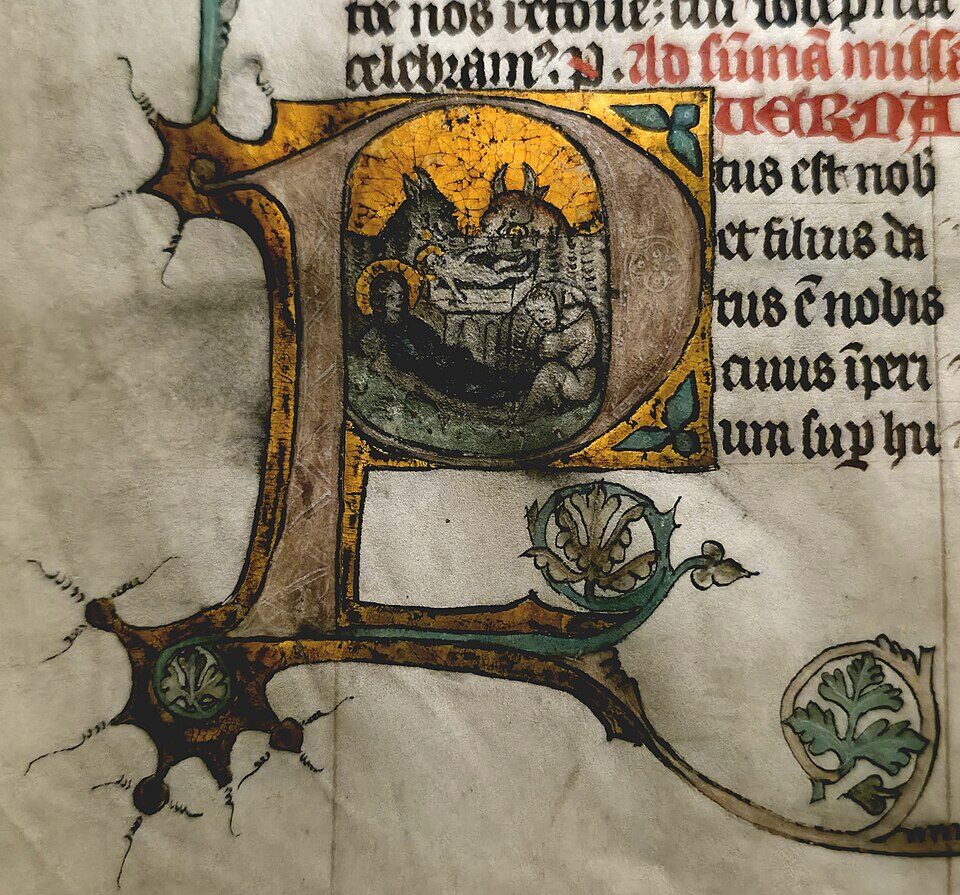 nos
celebram⁹. P. Ad sūmā missā
PUERNA
tus est nob
et filius da
tus ē nobis
cuius īperi
um sup hu